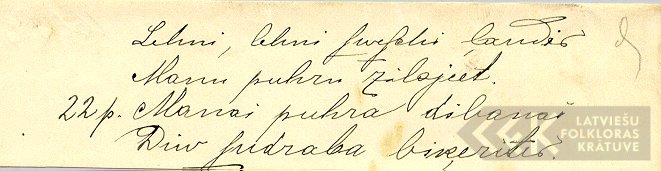 Lehni, lehni sweschi laudis
Manu puhru zilajeet.
22p. Manai puhra dibanai
Diw sudraba biķerites.
LATVIEŠU
FOLKLORAS
KRĀTUVE